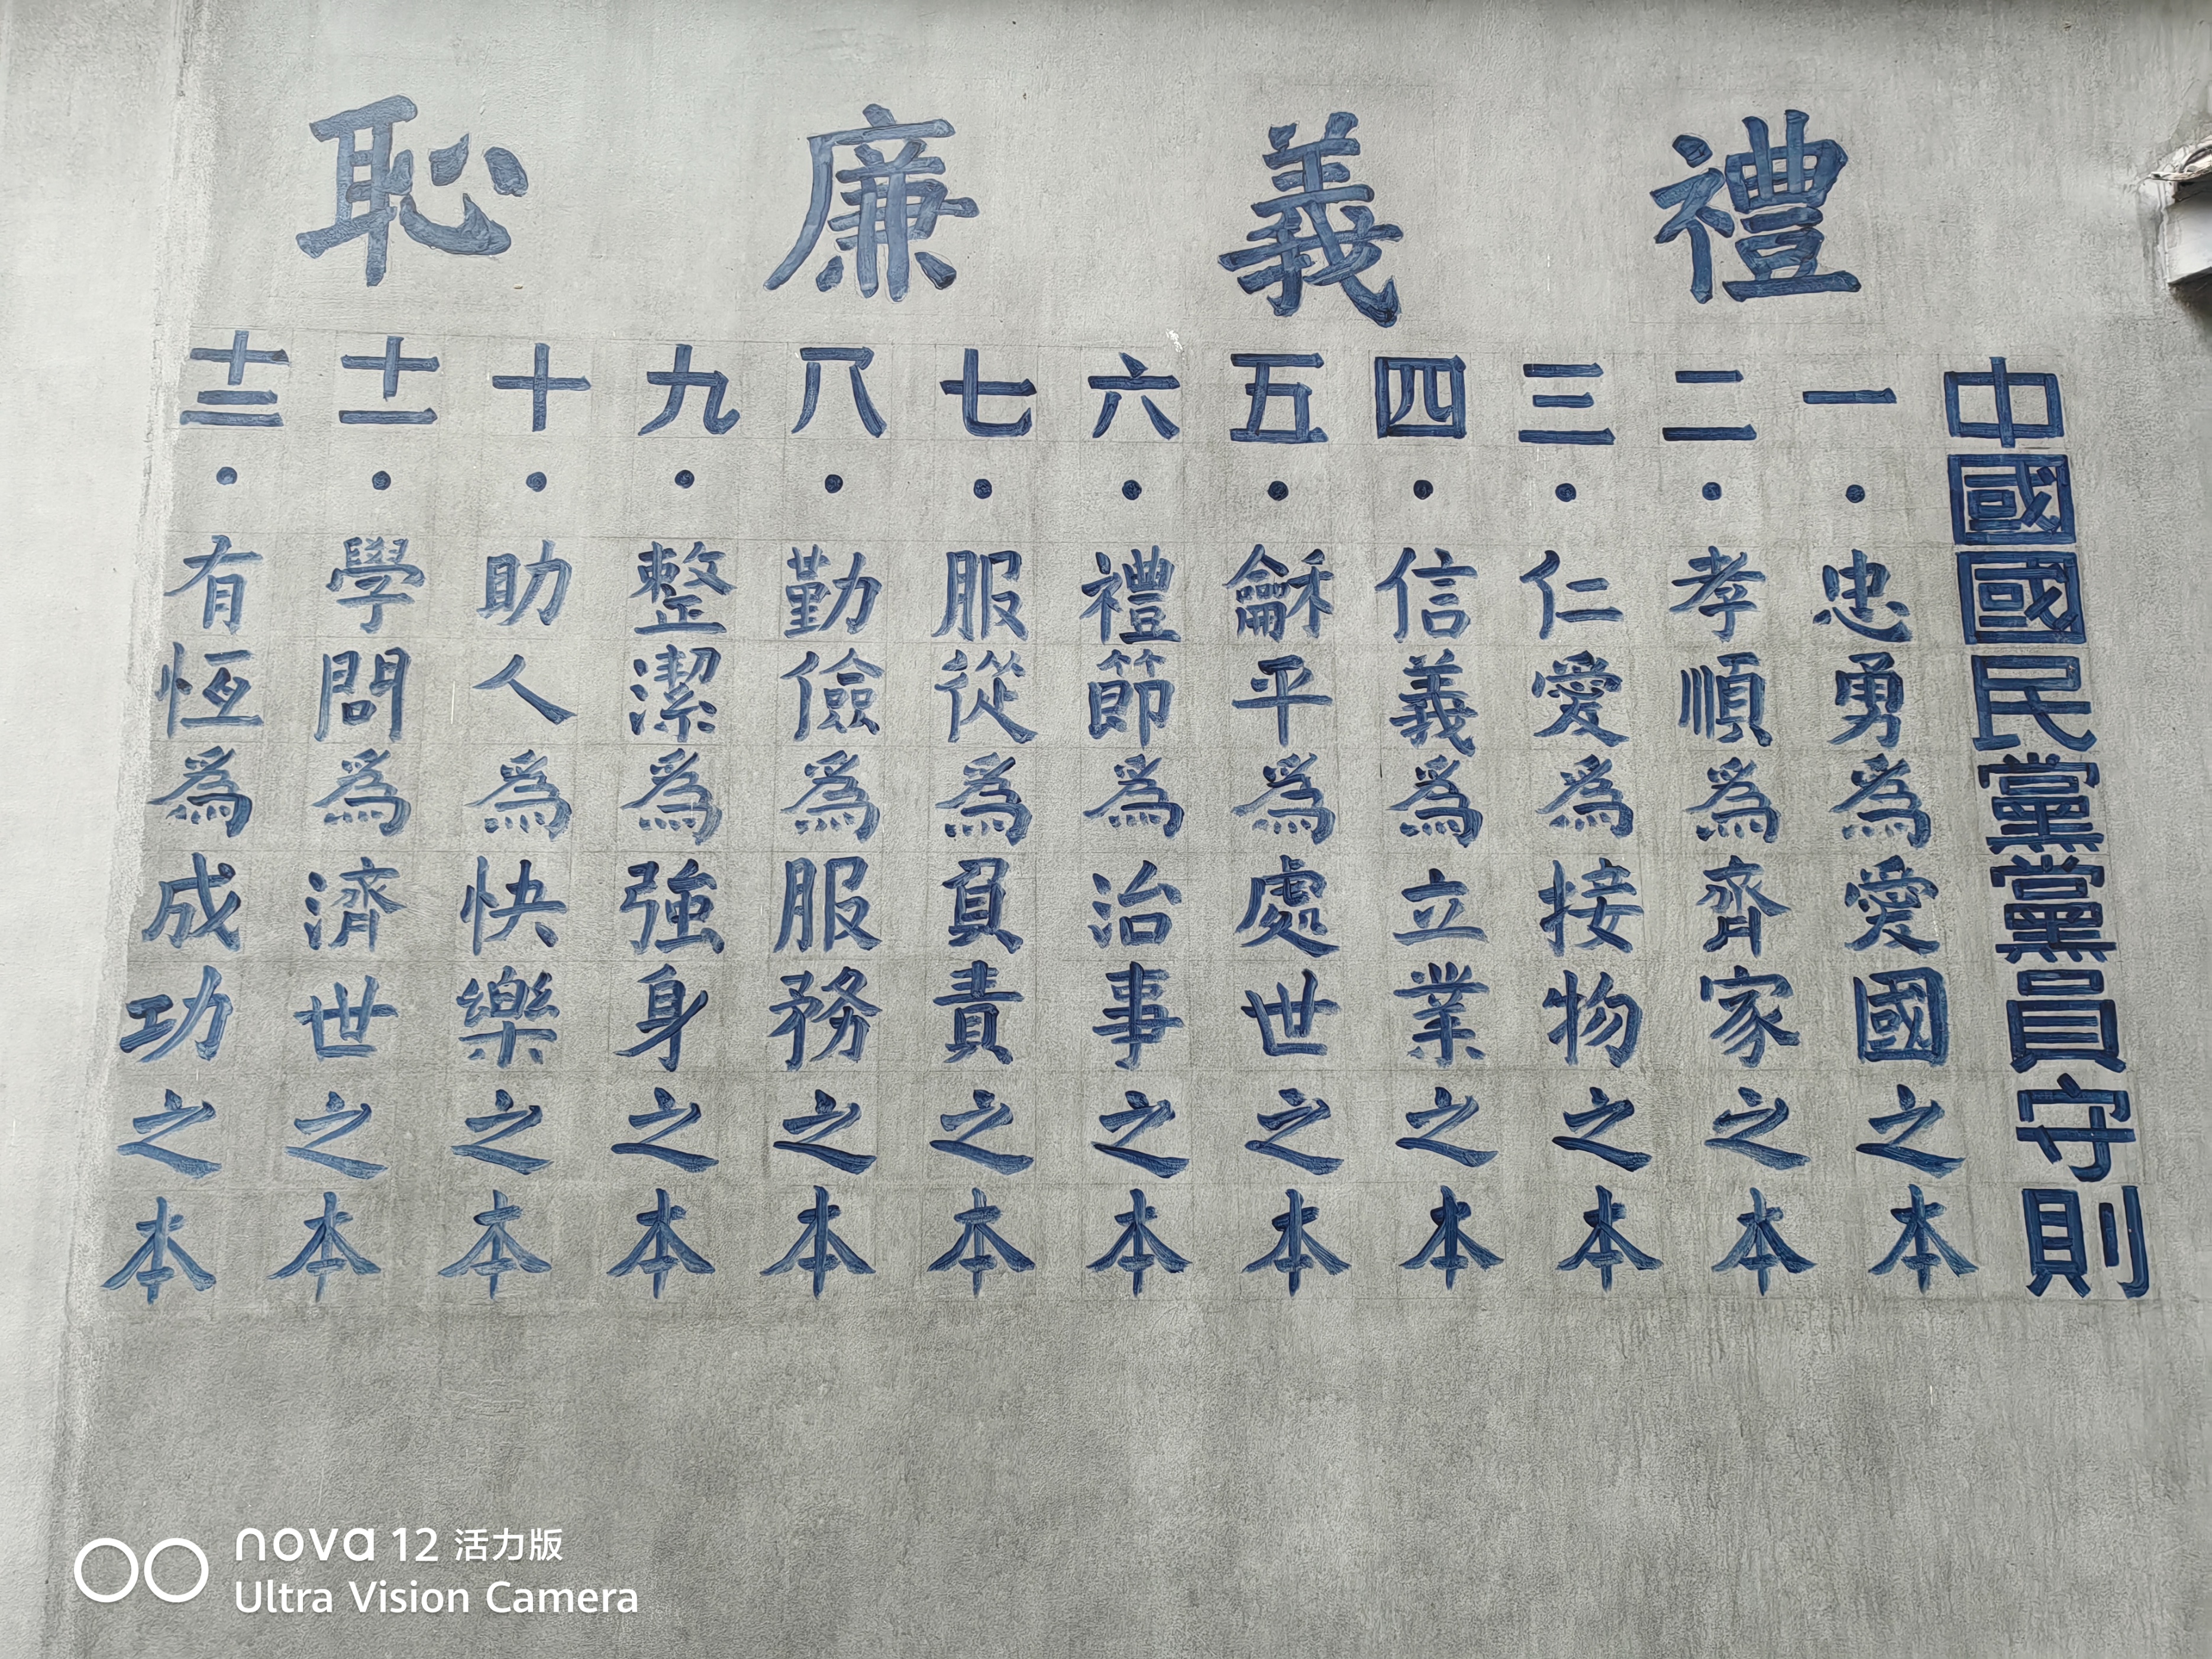 禮義廉恥
中國國民黨黨員守則
一·忠勇為愛國之本
二·孝順為齊家之本
三·仁愛為接物之本
四·信義為立業之本
五·龢平為處世之本
六·禮節為治事之本
七·服從為負責之本
八·勤儉為服務之本
九·整潔為強身之本
十·助人為快樂之本
十一·學問為濟世之本
十二·有恆為成功之本
nova 12 活力版
Ultra Vision Camera